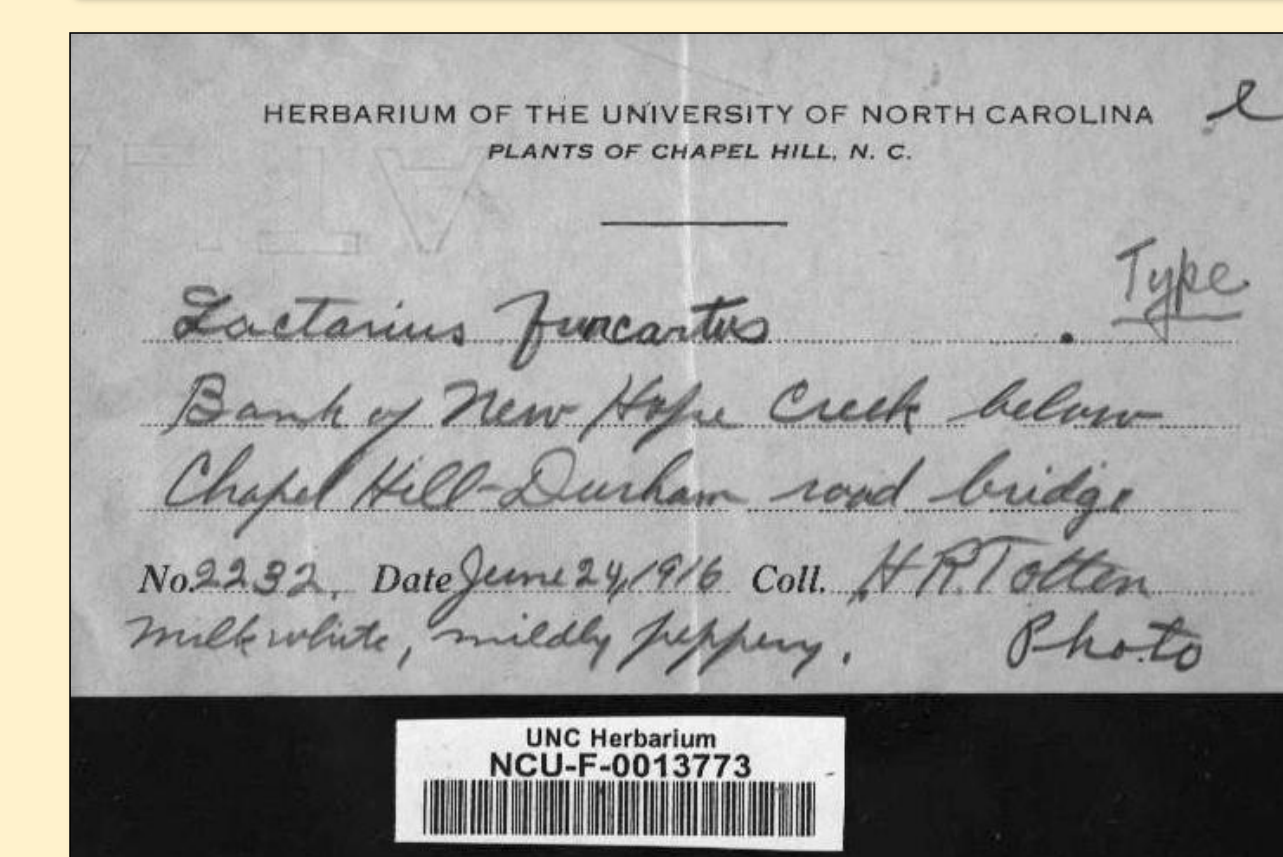 HERBARIUM OF THE UNIVERSITY OF NORTH CAROLINA
PLANTS OF CHAPEL HILL, N. C.
Type
Lactarius furcartus
Bank of New Hope Creek below
Chapel Hill-Durham road bridge
No. 2232. Date June 24, 1916 Coll. H R. Totten
Milk white, mildly peppery. Photo
UNC Herbarium
NCU-F-0013773